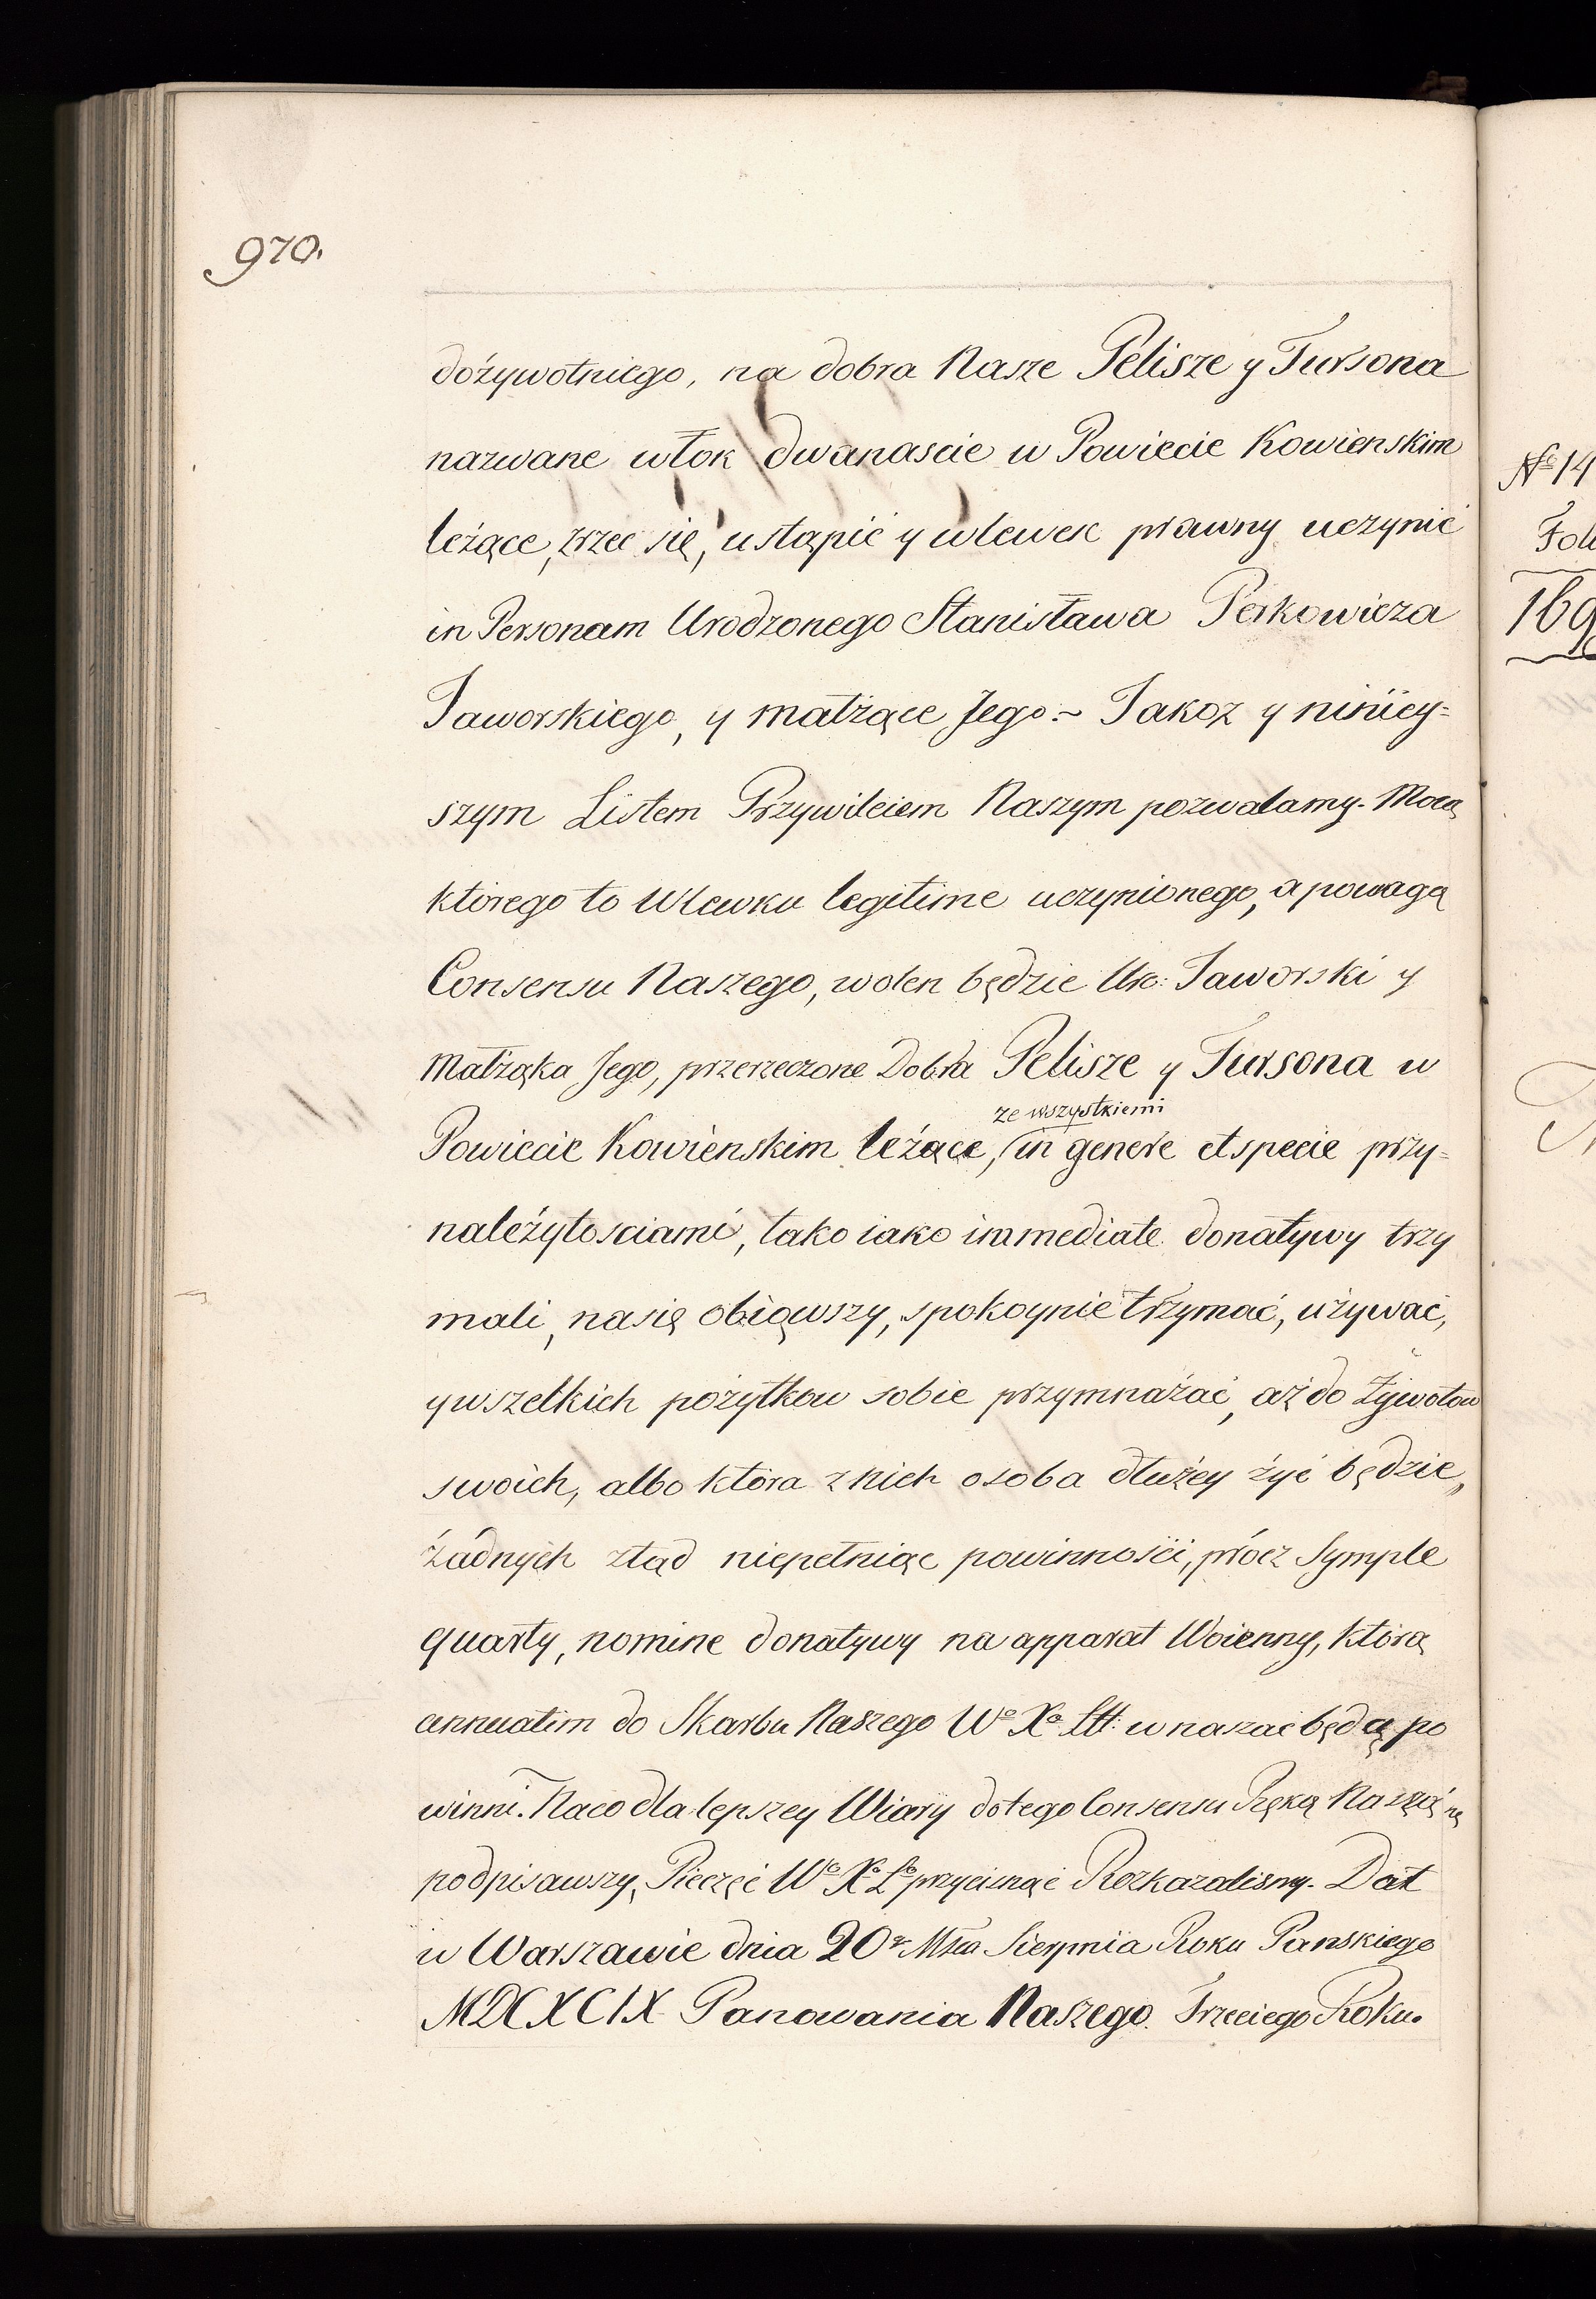 970.
dożywotniego, na dobra Nasze Pelisze y Tursona
nazwane włok dwanascie w Powiecie Kowienskim
leżące, zrzec się, ustąpić y wlewek prawny uczynić
in Personam Urodzonego Stanisława Perkowicza
Jaworskiego, y małżące Jego.~ Jakoż y ninieÿ=
szym Listem Przywileiem Naszym pozwalamy. Mocą
ktorego to Wlewku legitime uczynionego, a powagą
Consensu Naszego, wolen będzie Uro: Jaworski y
Małżąka Jego, przerzeczone Dobra Pelisze y Tursona w
ze wszystkiemi
Powiecie Kowienskim leżące, in genere et specie przy=
należytosciami, tako iako immediate donatywy trzy
mali, na się obiąwszy, spokoynie trzymać, używać,
y wszelkich pożytkow sobie przymnażać, aż do Żywotow
swoich, albo ktora z nich osoba dłużey żyć będzie,,
żadnych ztąd niepełniąc powinnośći, prócz symple
quarty, nomine donatywy na apparat Woienny, ktorą
annuatim do Skarbu Naszego Wo Xa Litt: wnaszać będą po
winni. Na co dla lepszey Wiary do tego Consensu Ręką Naszą
podpisawszy, Pieczęć Wo Xa Lo przycisnąć Rozkazalismy. Dat
w Warszawie dnia 20 Msca Sierpnia Roku Panskiego
MDCXCIX Panowania Naszego Trzeciego Roku.
No 14
Foli
169